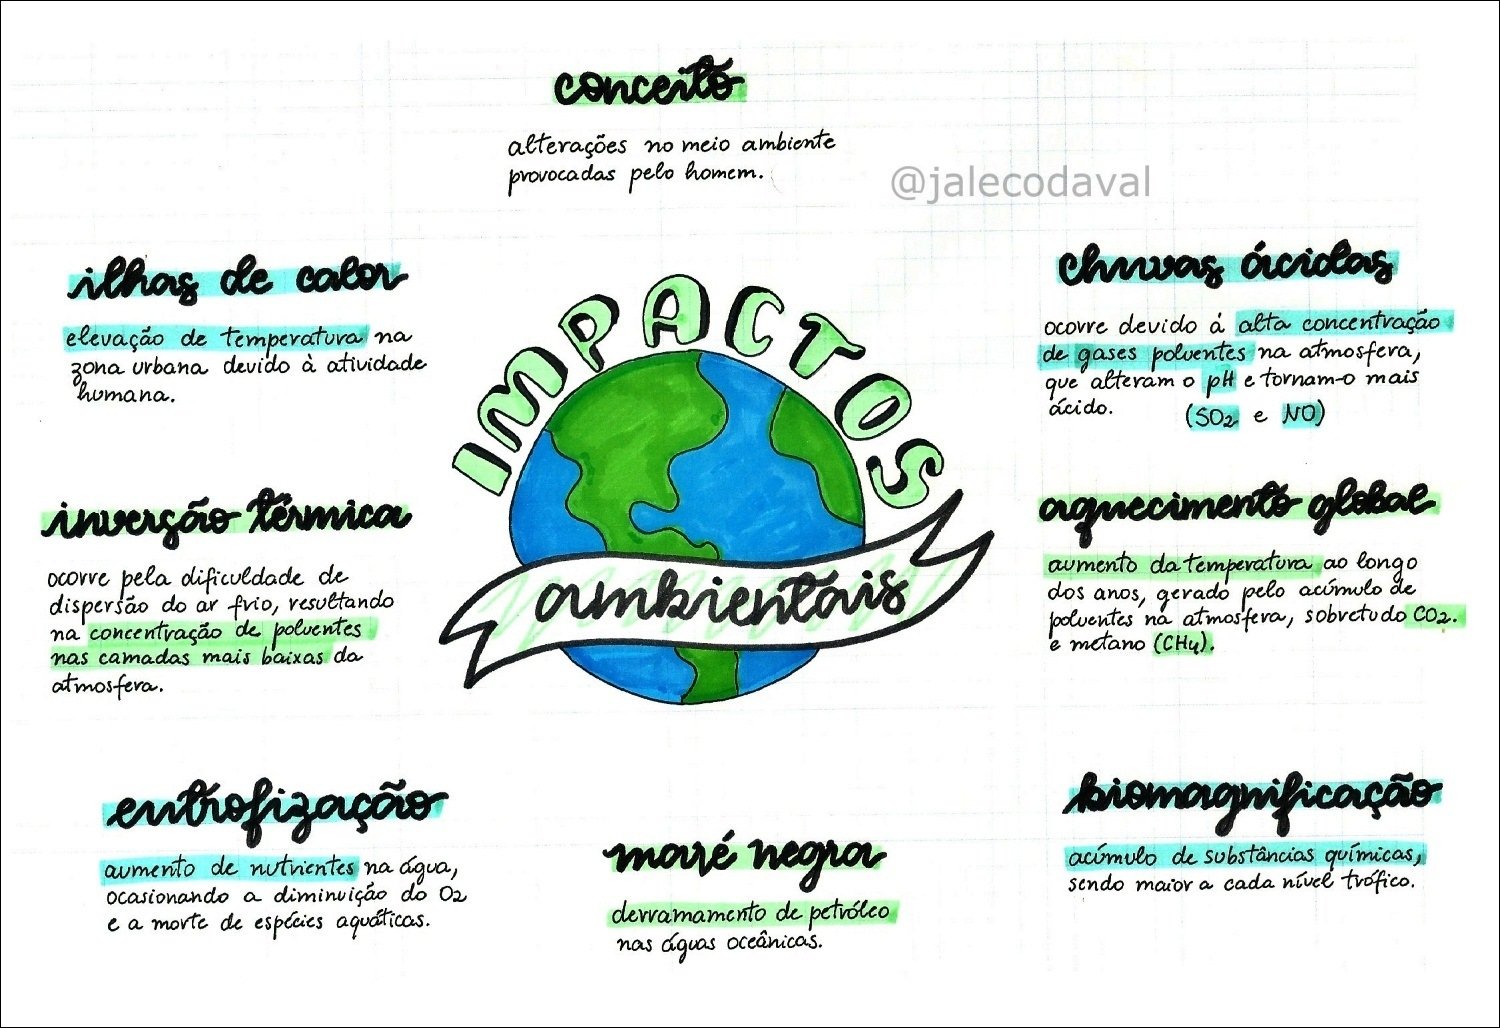 conceito
alterações no meio ambiente
provocadas pelo homem.
@jalecodaval
ilhas de calor
elevação de temperatura na
zona urbana devido à atividade
humana.
chuvas ácidas
ocorre devido á alta concentração
de gases poluentes na atmosfera,
que alteram o pH e tornam-o mais
ácido. (SO2 e NO)
IMPACTOS
ambientais
inversão térmica
ocorre pela dificuldade de
dispersão do ar frio, resultando
na concentração de poluentes
nas camadas mais baixas da
atmosfera.
aquecimento global
aumento da temperatura ao longo
dos anos, gerado pelo acúmulo de
poluentes na atmosfera, sobretudo CO2.
e metano (CH4).
eutrofização
aumento de nutrientes na água,
ocasionando a diminuição do O2
e a morte de espécies aquáticas.
maré negra
derramamento de petróleo
nas águas oceânicas.
biomagnificação
acúmulo de substâncias químicas,
sendo maior a cada nível trófico.